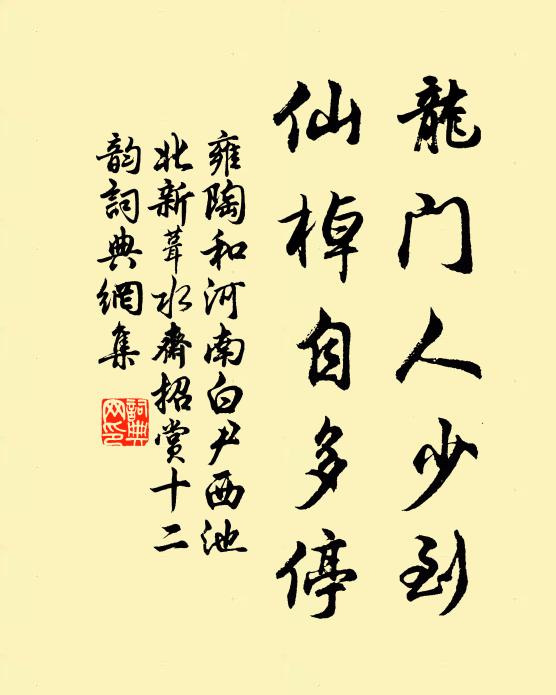 龍门人少到
仙棹自多停
雍陶和河南白尹西池
北新葺水齋招賞十二
韵詞典網集
詞典
网印